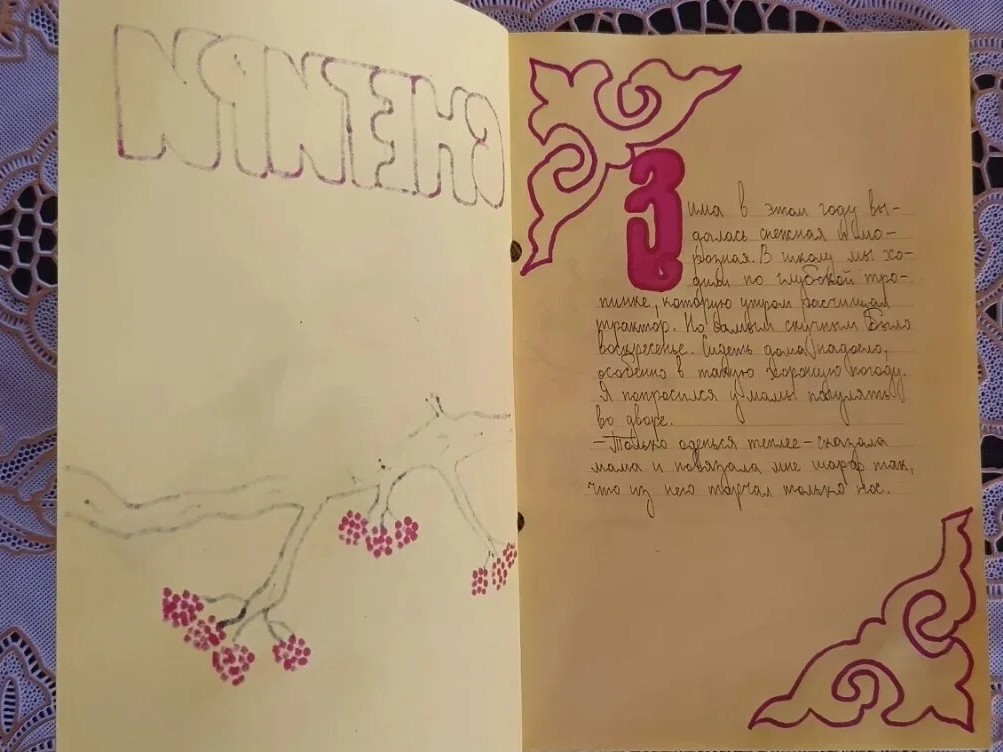 СНЕГИРИ
Зима в этом году вы-
далась снежная и мо-
розная. В школу мы хо-
дили по глубокой тро-
пинке, которую утром расчищал
трактор. Но самым скучным было
воскресенье. Сидеть дома надоело,
особенно в такую хорошую погоду.
Я попросился у мамы погулять
во дворе.
-Только оденься теплее-сказала
мама и повязала мне шарф так,
что из него торчал только нос.